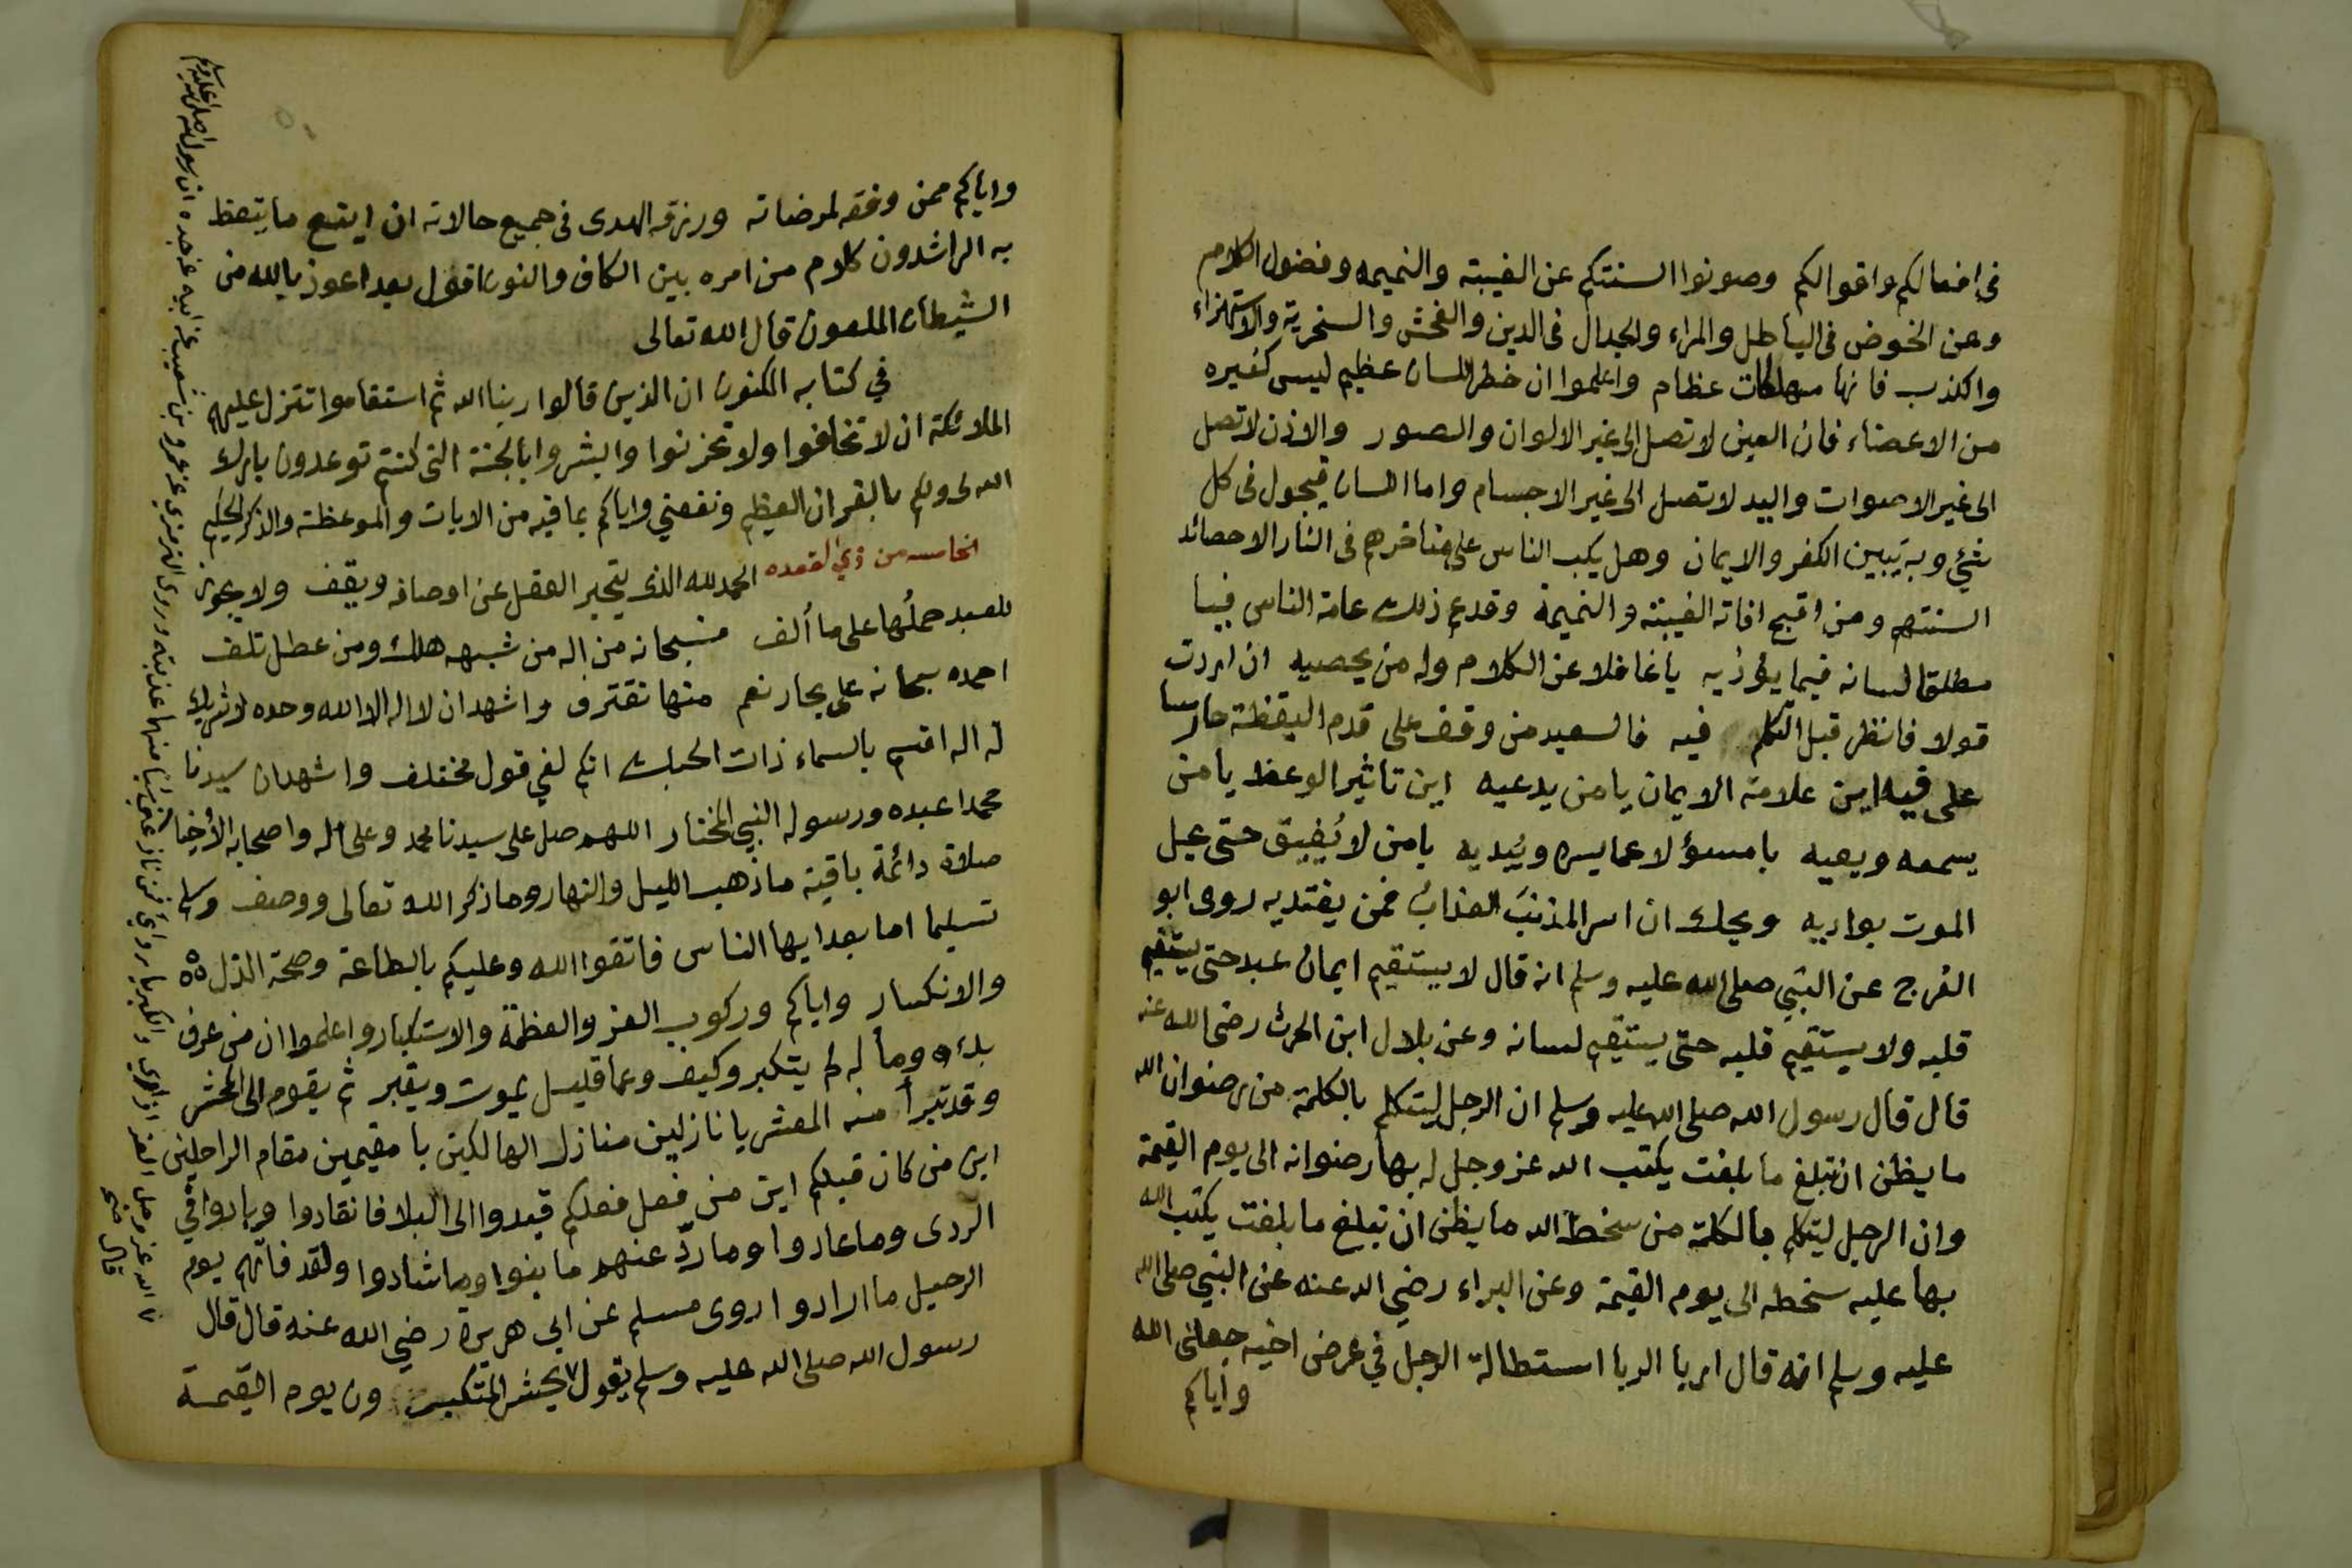 في افعالكم واقوالكم وصونوا السنتكم عن الغيبته والنميمه وفضول الكلام
وعن الخوض فى الباطل والمراء والجدال فى الدين والفحش والسخرية والاستهزاء
والكذب فانها مهلكات عظام واعلموا ان خطر اللسان عظيم ليس كغيره
من الاعضاء فان العين لا تصل الى غير الالوان والصور والاذن لا تصل
الى غير الاصوات واليد لا تصل الى غير الاجسام واما اللسان فيجول فى كل
شئي وبه يتبين الكفر والايمان وهل يكب الناس على مناخرهم فى النار الا حصائد
السنتهم ومن اقبح افاته الغيبته والنميمة وقد عم ذلك عامة الناس فيا
مطلقا لسانه فيما يؤذيه يا غافلا عن الكلام وله من يحصيه ان اردت
قولا فانظر قبل التكلم فيه فالسعيد من وقف على قدم اليقظة حارسا
على فيه اين علامة الايمان يا من يدعيه اين تاثير الوعظ يا من
يسمعه ويعيه يا مسؤلا عما يسره ويُبديه يا من لا يُفيق حتى يحل
الموت بواديه ويحك ان اسر المذنبَ العذابُ فمن يفتديه روى ابو
الفرج عن النبي صلى الله عليه وسلم انه قال لا يستقيم ايمان عبد حتى يستقيم
قلبه ولا يستقيم قلبه حتى يستقيم لسانه وعن بلال ابن الحرث رضى الله عنه
قال قال رسول الله صلى الله عليه وسلم ان الرجل ليتكلم بالكلمة من رضوان الله
ما يظن ان تبلغ ما بلغت يكتب الله عز وجل له بها رضوانه الى يوم القيمة
وان الرجل ليتكلم بالكلمة من سخط الله ما يظن ان تبلغ ما بلغت يكتب الله
بها عليه سخطه الى يوم القيمة وعن البراء رضي الله عنه عن النبي صلى الله
عليه وسلم انه قال اربا الربا استطالة الرجل في عرض اخيه جعلني الله
واياكم
واياكم ممن وفقه لمرضاته ورزقه الهدى فى جميع حالاته ان ابتع ما يتعظ
به الراشدون كلام من امره بين الكاف والنون اقول بعد اعوذ بالله من
الشيطان الملعون قال الله تعالى
في كتابه المكنون ان الذين قالوا ربنا الله ثم استقاموا تتنزل عليهم
الملائكة ان لا تخافوا ولا تحزنوا وابشروا بالجنة التى كنتم توعدون بارك
الله لى ولكم بالقران العظيم ونفعني واياكم بما فيه من الايات والموعظة والذكر الحكيم
الخامسه من ذي القعده الحمد لله الذى يتحير العقل عن اوصافه ويقف ولا يجوز
للعبد حملُها على ما ألف فسبحانه من اله من شبهه هلك ومن عطل تلف
احمده سبحانه على بحار نعم منها نغترف واشهد ان لا اله الا الله وحده لا شريك
له اله اقسم بالسماء ذات الحبك انكم لفي قول مختلف واشهد ان سيدنا
محمدا عبده ورسوله النبي المختار اللهم صل على سيدنا محمد وعلى اله واصحابه الأخيار
صلاة دائمة باقية ما ذهب الليل والنهار وما ذكر الله تعالى ووصف وسلم
تسليما اما بعد ايها الناس فاتقوا الله وعليكم بالطاعة وصحة الذل
والانكسار واياكم وركوب العز والعظمة والاستكبار واعلموا ان من عرف
بدءه ومأله لم يتكبر وكيف وعما قليل يموت ويقبر ثم يقوم الى المحشر
وقد تبرأ منه المعشر يا نازلين منازل الهالكين يا مقيمين مقام الراحلين
اين من كان قبلكم اين من فعل فعلكم قيدوا الى البلا فانقادوا وبادوا في
الردى وما عادوا وما ردّ عنهم ما بنوا وما شادوا ولقد فاتهم يوم
الرحيل ما ارادوا روى مسلم عن ابي هريرة رضي الله عنه قال قال
رسول الله صلى الله عليه وسلم يقول يحشر المتكبرون يوم القيمة
الله عز وجل العز ازاري والكبريا ردائي فمن نازعني شيا منها عذبته وروى الترمذي عن عمرو بن شعيب عن ابيه عن جده ان رسول الله صلى الله عليه وسلم
قال صح